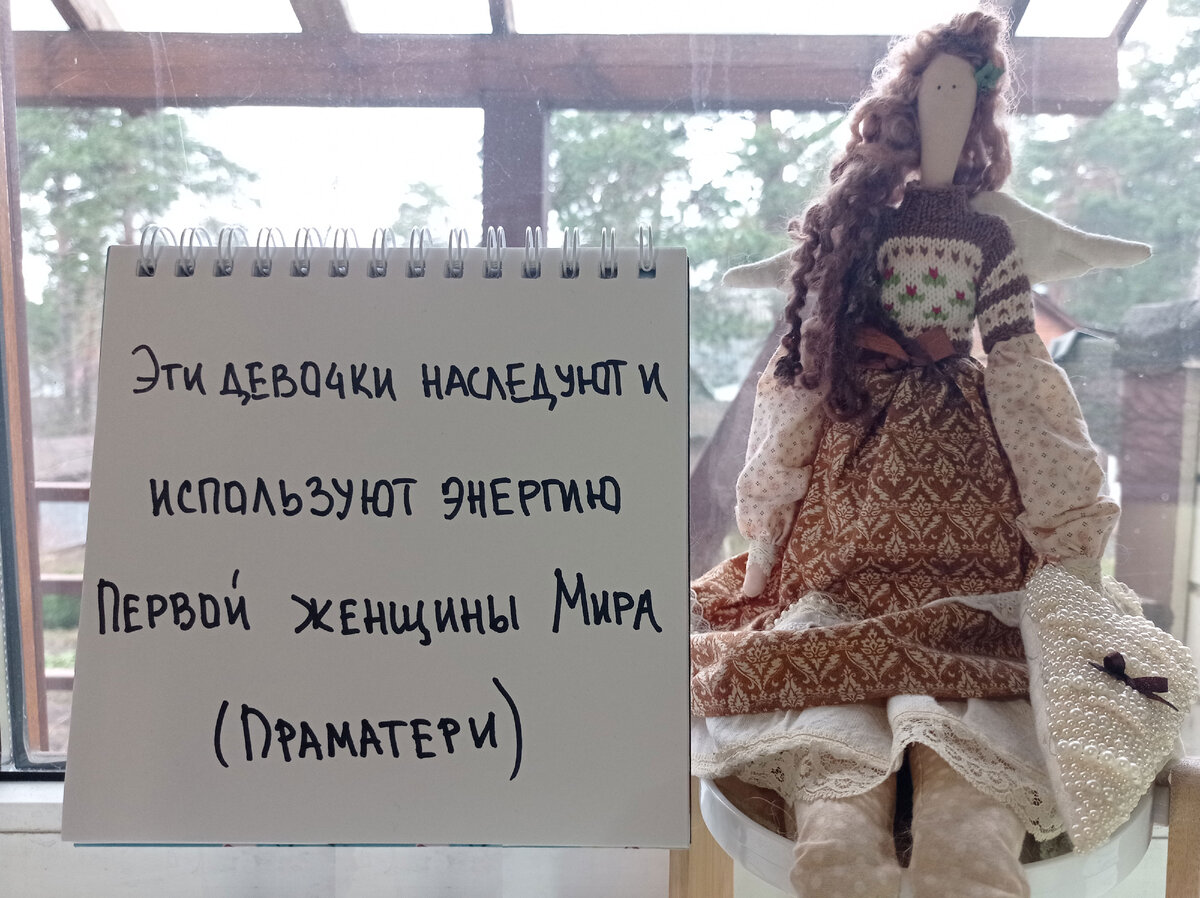 Эти девочки наследуют и
используют энергию
Первой женщины Мира
(Праматери)